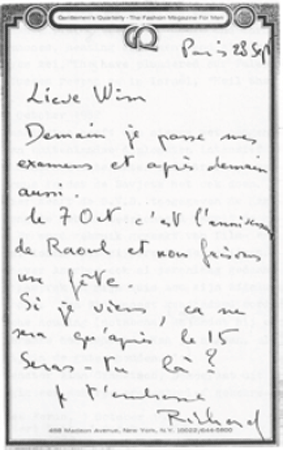 Gentlemen's Quarterly · The Fashion Magazine For Men
GQ
Paris 28 Sept
Lieve Wim
Demain je passe mes
examens et après demain
aussi.
le 7 Oct. c'est l'anniversaire
de Raoul et nous faisons
une fête.
Si je viens, ça ne
sera qu'après le 15
Seras-tu là?
Je t'embrasse
Richard
488 Madison Avenue, New York, N.Y. 10022/644-5800